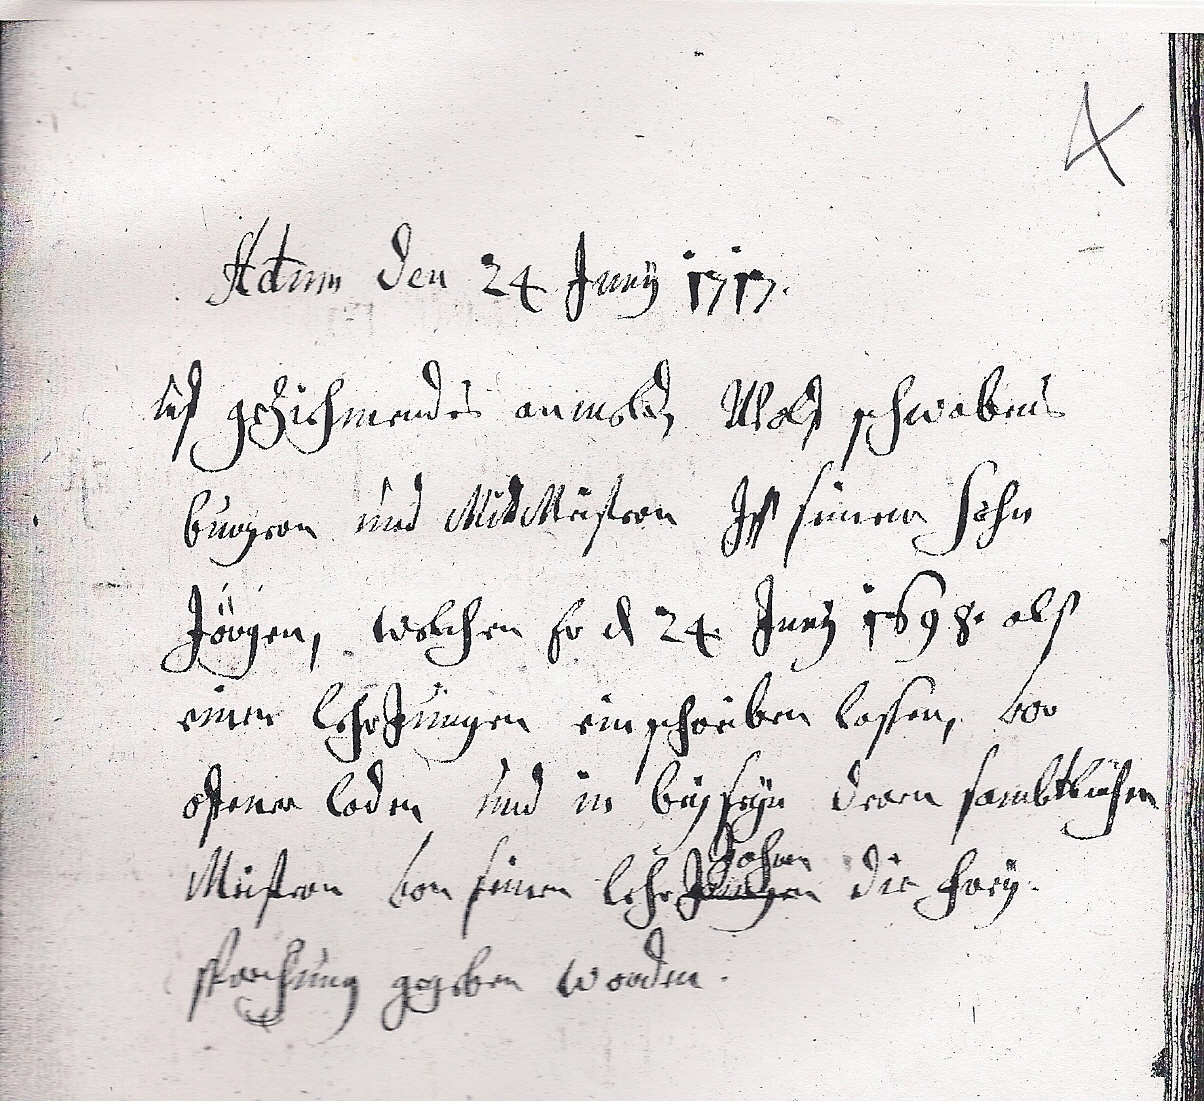 4
Actum den 24 Junij 1717.
Uf geziehmendes anmelden Wolf schwabens
burgern und Mit Meistern Ist seinem Sohn
Jörgen, welchen Er d 24 Junij 1698. alß
einen lehrJungen einschreiben lassen, vor
offener laden und in beyseyn deren sambtlichen
Meistern von seinen lehrJungen Jahren die frey-
sprechung gegeben worden.